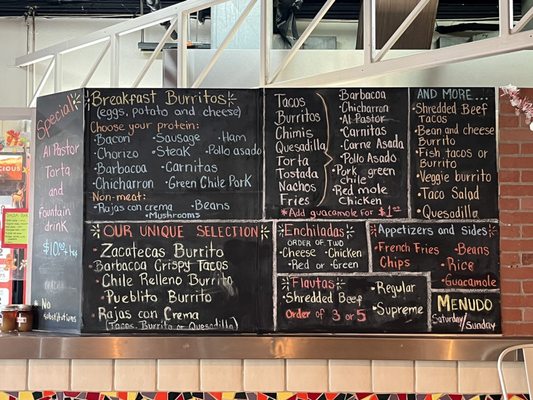 Special
Al Pastor
Torta
and
Fountain
drink
$10.00 +tax
No
substitutions
Breakfast Burritos
(eggs, potato and cheese)
Choose your protein:
• Bacon • Sausage • Ham
• Chorizo • Steak • Pollo asado
• Barbacoa • Carnitas
• Chicharron • Green Chile Pork
Non-meat:
• Rajas con crema • Beans
• Mushrooms
Tacos
Burritos
Chimis
Quesadilla
Torta
Tostada
Nachos
Fries
• Barbacoa
• Chicharron
• Al Pastor
• Carnitas
• Carne Asada
• Pollo Asado
• Pork green
chile
• Red mole
Chicken
*Add guacamole for $1
And more...
• Shredded Beef
Tacos
• Bean and cheese
Burrito
• Fish tacos or
Burrito
• Veggie burrito
• Taco Salad
• Quesadilla
Our Unique Selection
• Zacatecas Burrito
• Barbacoa Crispy Tacos
• Chile Relleno Burrito
• Pueblito Burrito
• Rajas con Crema
(Tacos, Burrito or Quesadilla)
Enchiladas
order of two
• Cheese • Chicken
• Red or Green
Appetizers and sides
• French Fries • Beans
• Chips • Rice
• Guacamole
Flautas
• Shredded Beef
Order of 3 or 5
• Regular
• Supreme
Menudo
Saturday/Sunday